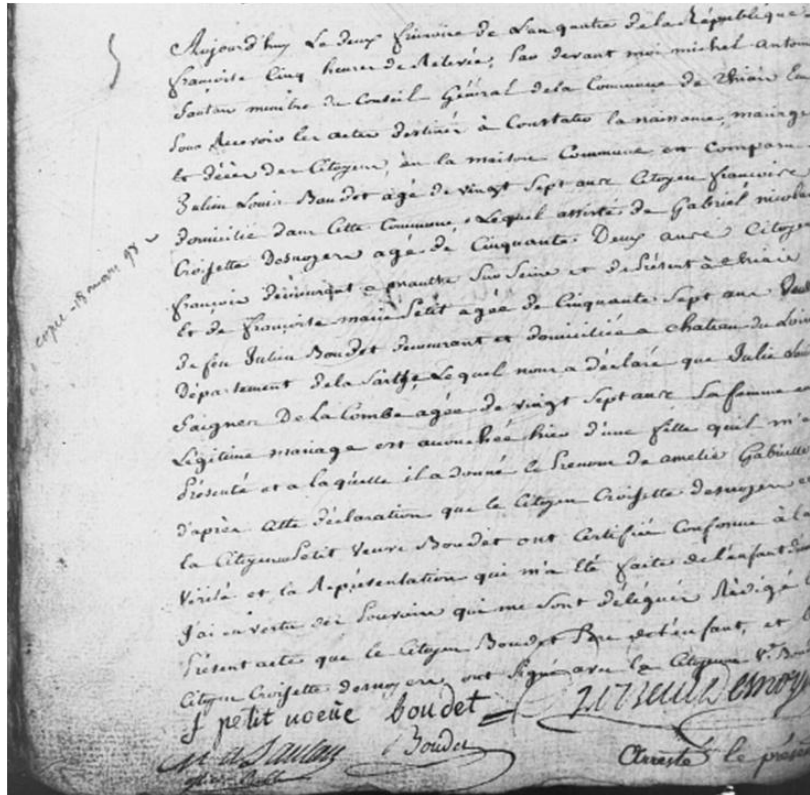 Aujourd'huy Le deux frimaire de L'an quatre de la République
françoise Cinq heures de Relevée, Par devant moi michel Antoine
Sautan membre du Conseil Général de la Commune de Thiais
pour Recevoir les actes destinés à Constater la naissance, mariage
Et décès des Citoyens, en la maison Commune est Comparu
Julien Louis Boudet agé de vingt Sept ans Citoyen françoise
domicilié dans Cette Commune, Lequel assisté de Gabriel nicolas
Croisette Desnoyers agé de Cinquante Deux ans Citoyen
françois demeurant a Sur Seine et de Présent à thiais
Et de françoise marie Petit agée de Cinquante Sept ans
de feu Julien Boudet demeurant et domiciliée a chateau du Loir
Département de la Sarthe, Lequel nous a déclaré que Julie
Saigner De La Combe agée de vingt Sept ans Sa femme en
Légitime mariage est accouchée hier d'une fille quil m'a
Présenté et a laquelle il a donné le Prenom de amelie Gabrielle
d'après Cette déclaration que le Citoyen Croisette desnoyers et
la Citoyenne Petit Veuve Boudet ont Certifiée Conforme à la
Vérité et la Représentation qui m'a Eté faite de L'enfant
J'ai en vertu des Pouvoirs qui me sont délégués Rédigé
Présent acte que le Citoyen Boudet Pere de L'enfant, et
Citoyen Croisette desnoyers ont Signé avec la Citoyenne Ve Boudet
f petit veuve boudet
Boudet
Arresté le présent
copie - 18 mars 98